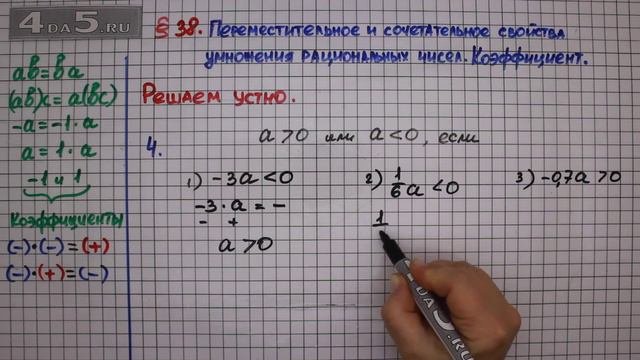 4DA5.RU
§ 38. Переместительное и сочетательное свойства
умножения рациональных чисел. Коэффициент.
ab=ba
(ab)c=a(bc)
-a=-1·a
a=1·a
-1 и 1
Коэффициенты
(-)·(-)=(+)
(-)·(+)=(-)
Решаем устно.
4. a>0 или a<0, если
1) -3a<0
-3·a=-
- +
a>0
2) 1/6a<0
1
3) -0,7a>0
4DA5.RU